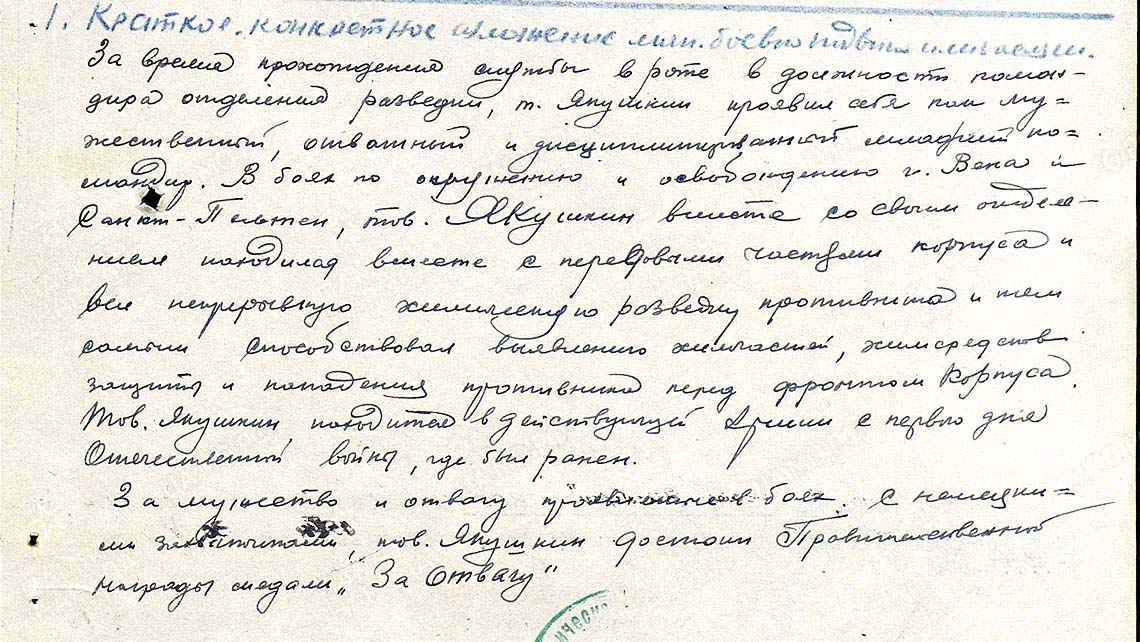 1. Краткое, конкретное изложение личн. боевого подвига или заслуг.
За время прохождения службы в роте в должности коман-
дира отделения разведки, т. Якушкин проявил себя как му-
жественный, отважный и дисциплинированный младший ко-
мандир. В боях по окружению и освобождению г. Вена и
Санкт-Пельтен, тов. Якушкин вместе со своим отделе-
нием находился вместе с передовыми частями корпуса и
вел непрерывную химическую разведку противника и тем
самым способствовал выявлению химчастей, химсредств
защиты и нападения противника перед фронтом Корпуса.
Тов. Якушкин, находится в действующей Армии с первого дня
Отечественной войны, где был ранен.
За мужество и отвагу проявленные в боях с немецки=
ми захватчиками, тов. Якушкин достоин Правительственной
награды медали „За Отвагу"